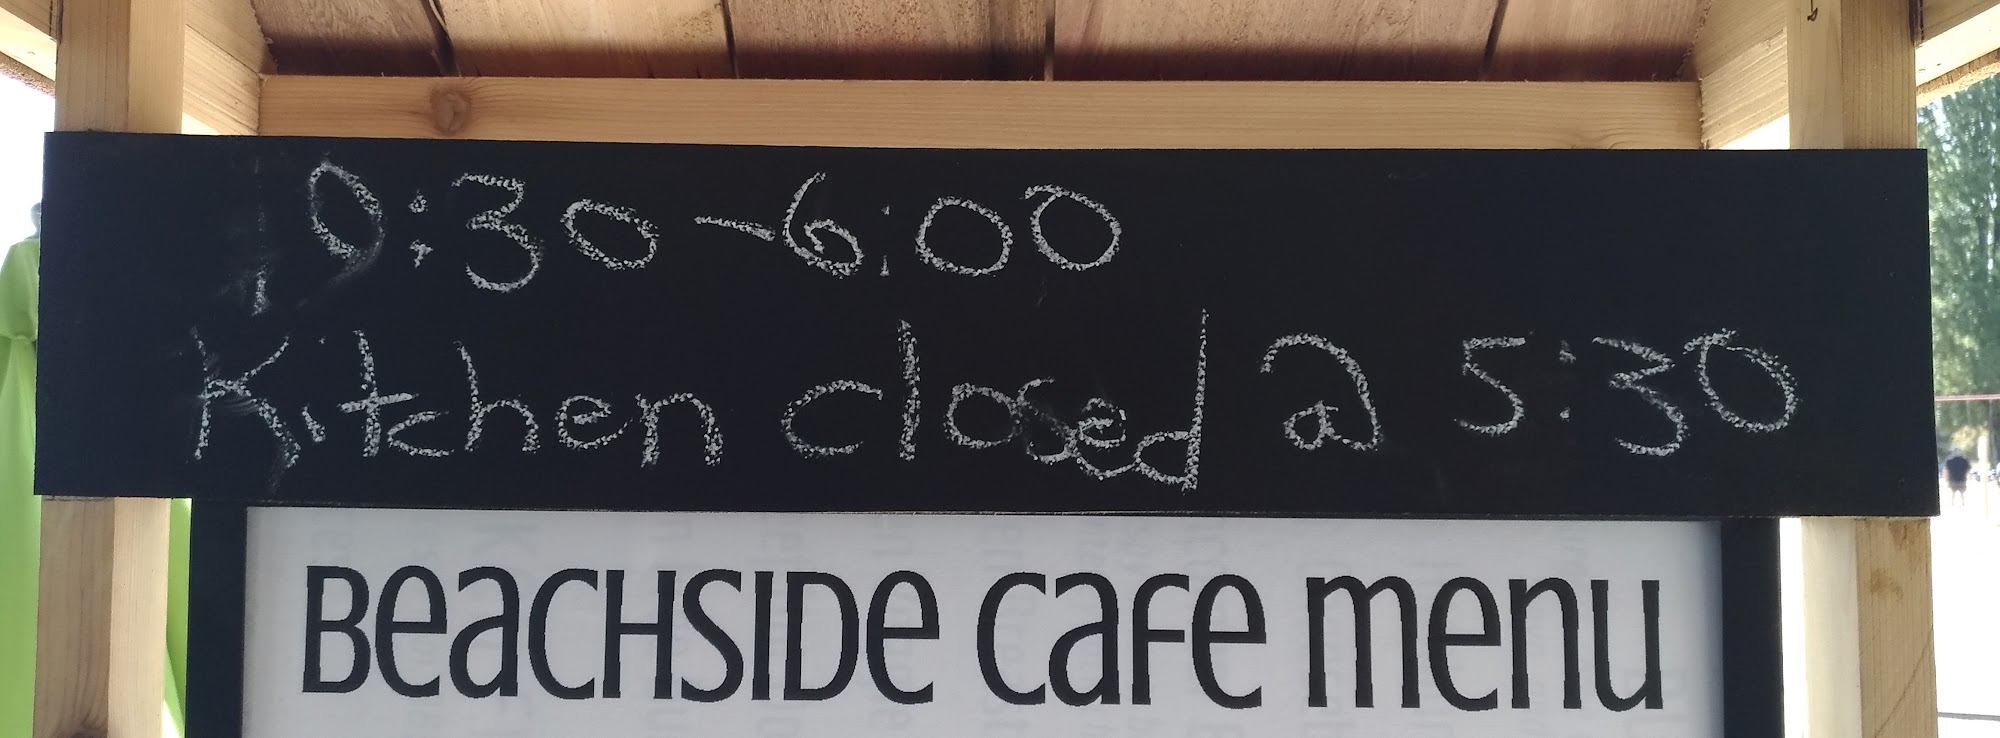 10:30-6:00
Kitchen closed @ 5:30
Beachside cafe menu